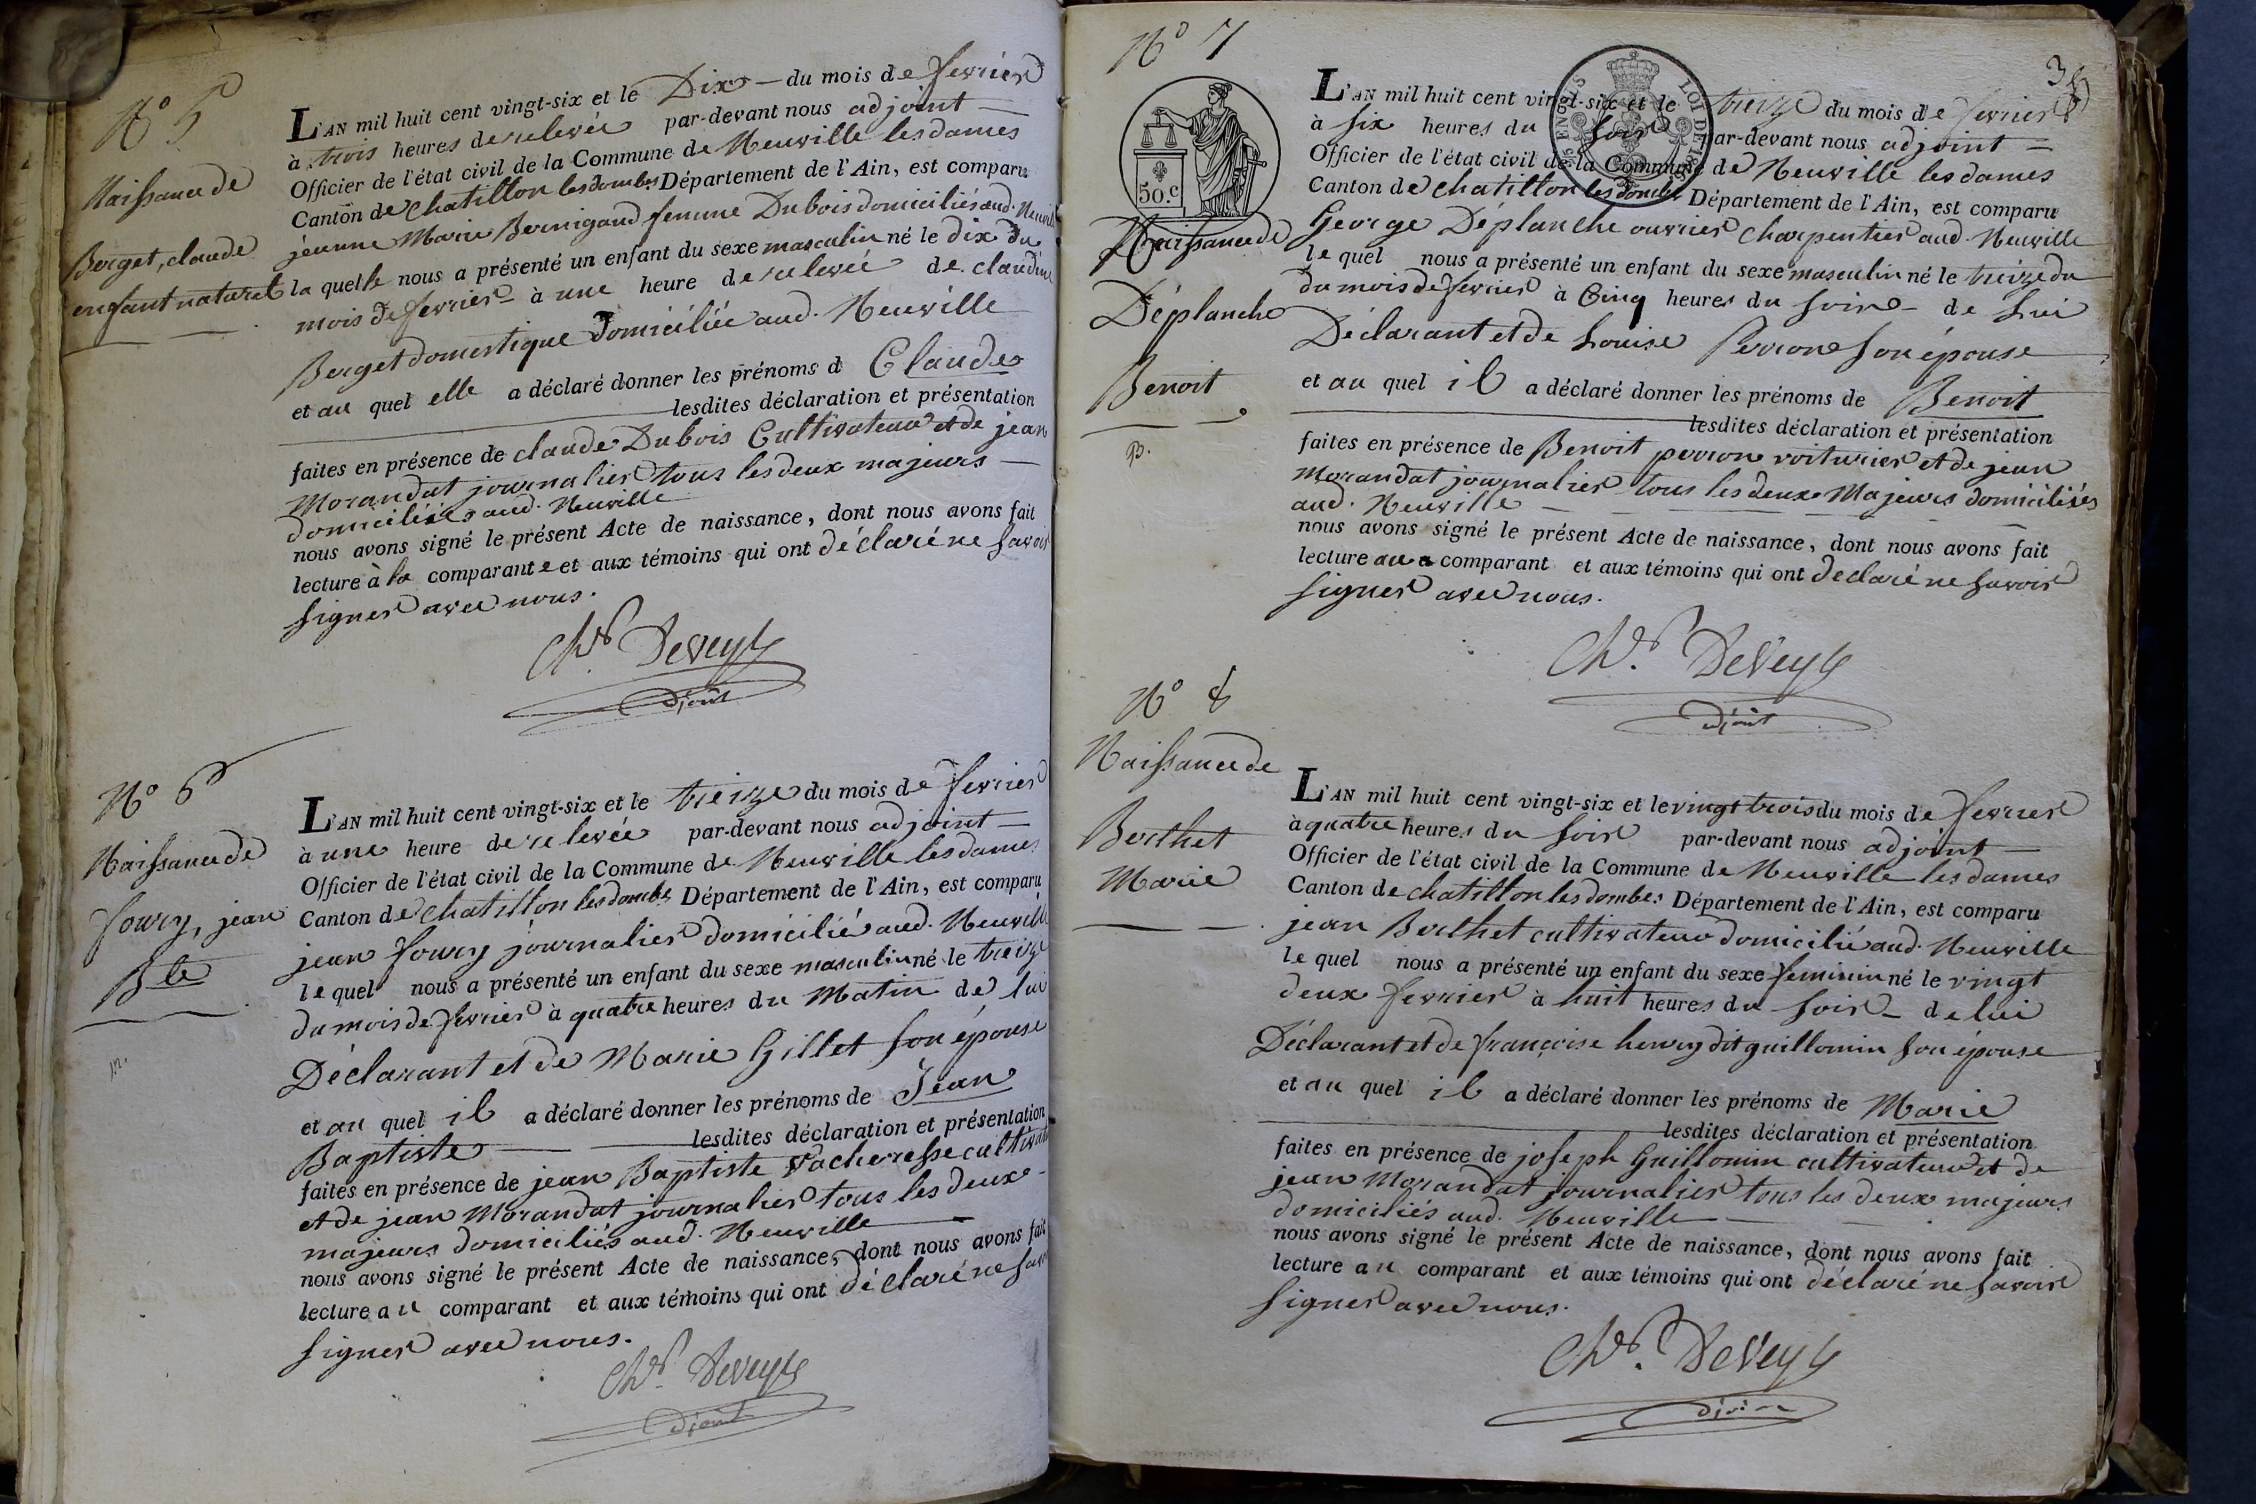 N° 5
Naissance de
Berget, claude
enfant naturel
L'AN mil huit cent vingt-six et le Dix du mois de fevrier
à trois heures de relevée par-devant nous adjoint
Officier de l'état civil de la Commune de Neuville les dames
Canton de Chatillon les dombes Département de l'Ain, est comparu
jeanne Marie Bernigaud femme Dubois domiciliés aud. Neuville
la quelle nous a présenté un enfant du sexe masculin né le dix du
mois de fevrier à une heure de relevée de claudine
Berget domestique Domiciliée aud. Neuville
et au quel elle a déclaré donner les prénoms d Claude
lesdites déclaration et présentation
faites en présence de claude Dubois Cultivateur et de jean
Morandat journalier tous les deux majeurs
domiciliés aud. Neuville
nous avons signé le présent Acte de naissance, dont nous avons fait
lecture à la comparante et aux témoins qui ont déclaré ne savoir
signer avec nous.
Chs. Deveyle
adjoint
N° 6
Naissance de
foury, jean
Bte
L'AN mil huit cent vingt-six et le treize du mois de fevrier
à une heure de relevée par-devant nous adjoint
Officier de l'état civil de la Commune de Neuville les dames
Canton de Chatillon les dombes Département de l'Ain, est comparu
jean foury journalier domicilié aud. Neuville
le quel nous a présenté un enfant du sexe masculin né le treize
du mois de fevrier à quatre heures du Matin de lui
Déclarant et de Marie Gillet son épouse
et au quel il a déclaré donner les prénoms de Jean
Baptiste lesdites déclaration et présentation
faites en présence de jean Baptiste Vacheresse cultivateur
et de jean Morandat journalier tous les deux
majeurs domiciliés aud. Neuville
nous avons signé le présent Acte de naissance, dont nous avons fait
lecture au comparant et aux témoins qui ont déclaré ne savoir
signer avec nous.
Chs. Deveyle
adjoint
N° 7
50.c
Naissance de
Déplanche
Benoit
B.
3
L'AN mil huit cent vingt-six et le treize du mois de fevrier
à six heures du soir par-devant nous adjoint
Officier de l'état civil de la Commune de Neuville les dames
Canton de Chatillon les dombes Département de l'Ain, est comparu
George Déplanche ouvrier Charpentier aud. Neuville
le quel nous a présenté un enfant du sexe masculin né le treize du
du mois de fevrier à Cinq heures du soir de Lui
Déclarant et de Louise Perrone son épouse
et au quel il a déclaré donner les prénoms de Benoit
lesdites déclaration et présentation
faites en présence de Benoit perrone voiturier et de jean
Morandat journalier tous les deux Majeurs domiciliés
aud. Neuville
nous avons signé le présent Acte de naissance, dont nous avons fait
lecture au comparant et aux témoins qui ont declaré ne savoir
signer avec nous.
Chs. Deveyle
adjoint
N° 8
Naissance de
Berthet
Marie
L'AN mil huit cent vingt-six et le vingt trois du mois de fevrier
à quatre heures du soir par-devant nous adjoint
Officier de l'état civil de la Commune de Neuville les dames
Canton de Chatillon les dombes Département de l'Ain, est comparu
jean Berthet cultivateur domicilié aud. Neuville
le quel nous a présenté un enfant du sexe feminin né le vingt
deux fevrier à huit heures du soir de lui
Déclarant et de françoise henry dit guillomin son épouse
et au quel il a déclaré donner les prénoms de Marie
lesdites déclaration et présentation
faites en présence de joseph Guillomin cultivateur et de
jean Morandat journalier tous les deux majeurs
domiciliés aud. Neuville
nous avons signé le présent Acte de naissance, dont nous avons fait
lecture au comparant et aux témoins qui ont déclaré ne savoir
signer avec nous.
Chs. Deveyle
adjoint